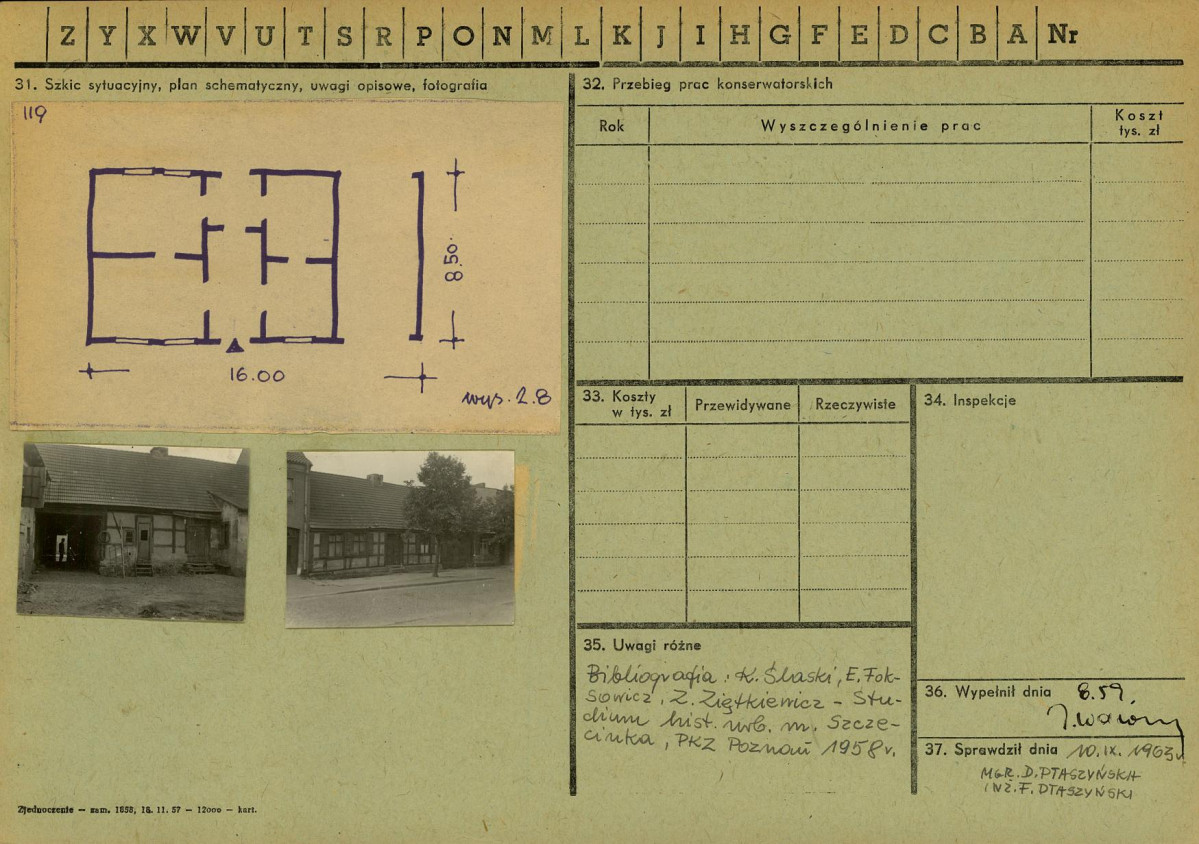 Z Y X W V U T S R P O N M L K J I H G F E D C B A Nr
31. Szkic sytuacyjny, plan schematyczny, uwagi opisowe, fotografia
119
8.50
16.00
wys. 2.8
32. Przebieg prac konserwatorskich
Rok
Wyszczególnienie prac
Koszt
tys. zł
33. Koszty
w tys. zł
Przewidywane
Rzeczywiste
34. Inspekcje
35. Uwagi różne
Bibliografia: K. Ślaski, E. Fok-
sowicz, Z. Ziętkiewicz – Stu-
dium hist. urb. m. Szcze-
cinka, PKZ Poznań 1958 r.
36. Wypełnił dnia 8.59.
37. Sprawdził dnia 10.IX.1963 r.
MGR. D. PTASZYŃSKA
INŻ. F. PTASZYŃSKI
Zjednoczenie — zam. 1858, 18. 11. 57 — 12000 — kart.